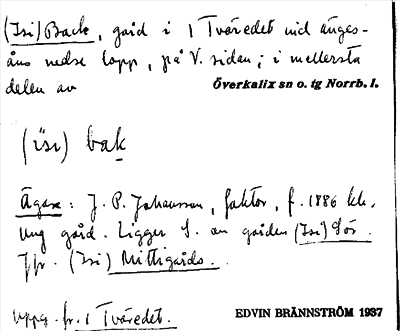 (Isi) Back, gård i 1 Tväredet vid änges-
åns nedre lopp, på V. sidan; i mellersta
delen av Överkalix sn o. tg Norrb. l.
(ìsi) bak
Ägare: J. P. Johansson, faktor, f. 1886
Ung gård. Ligger S. om gården (Isi) Sör.
Jfr. (Isi) Mittigårds.
Uppg. fr. 1 Tväredet. EDVIN BRÄNNSTRÖM 1937